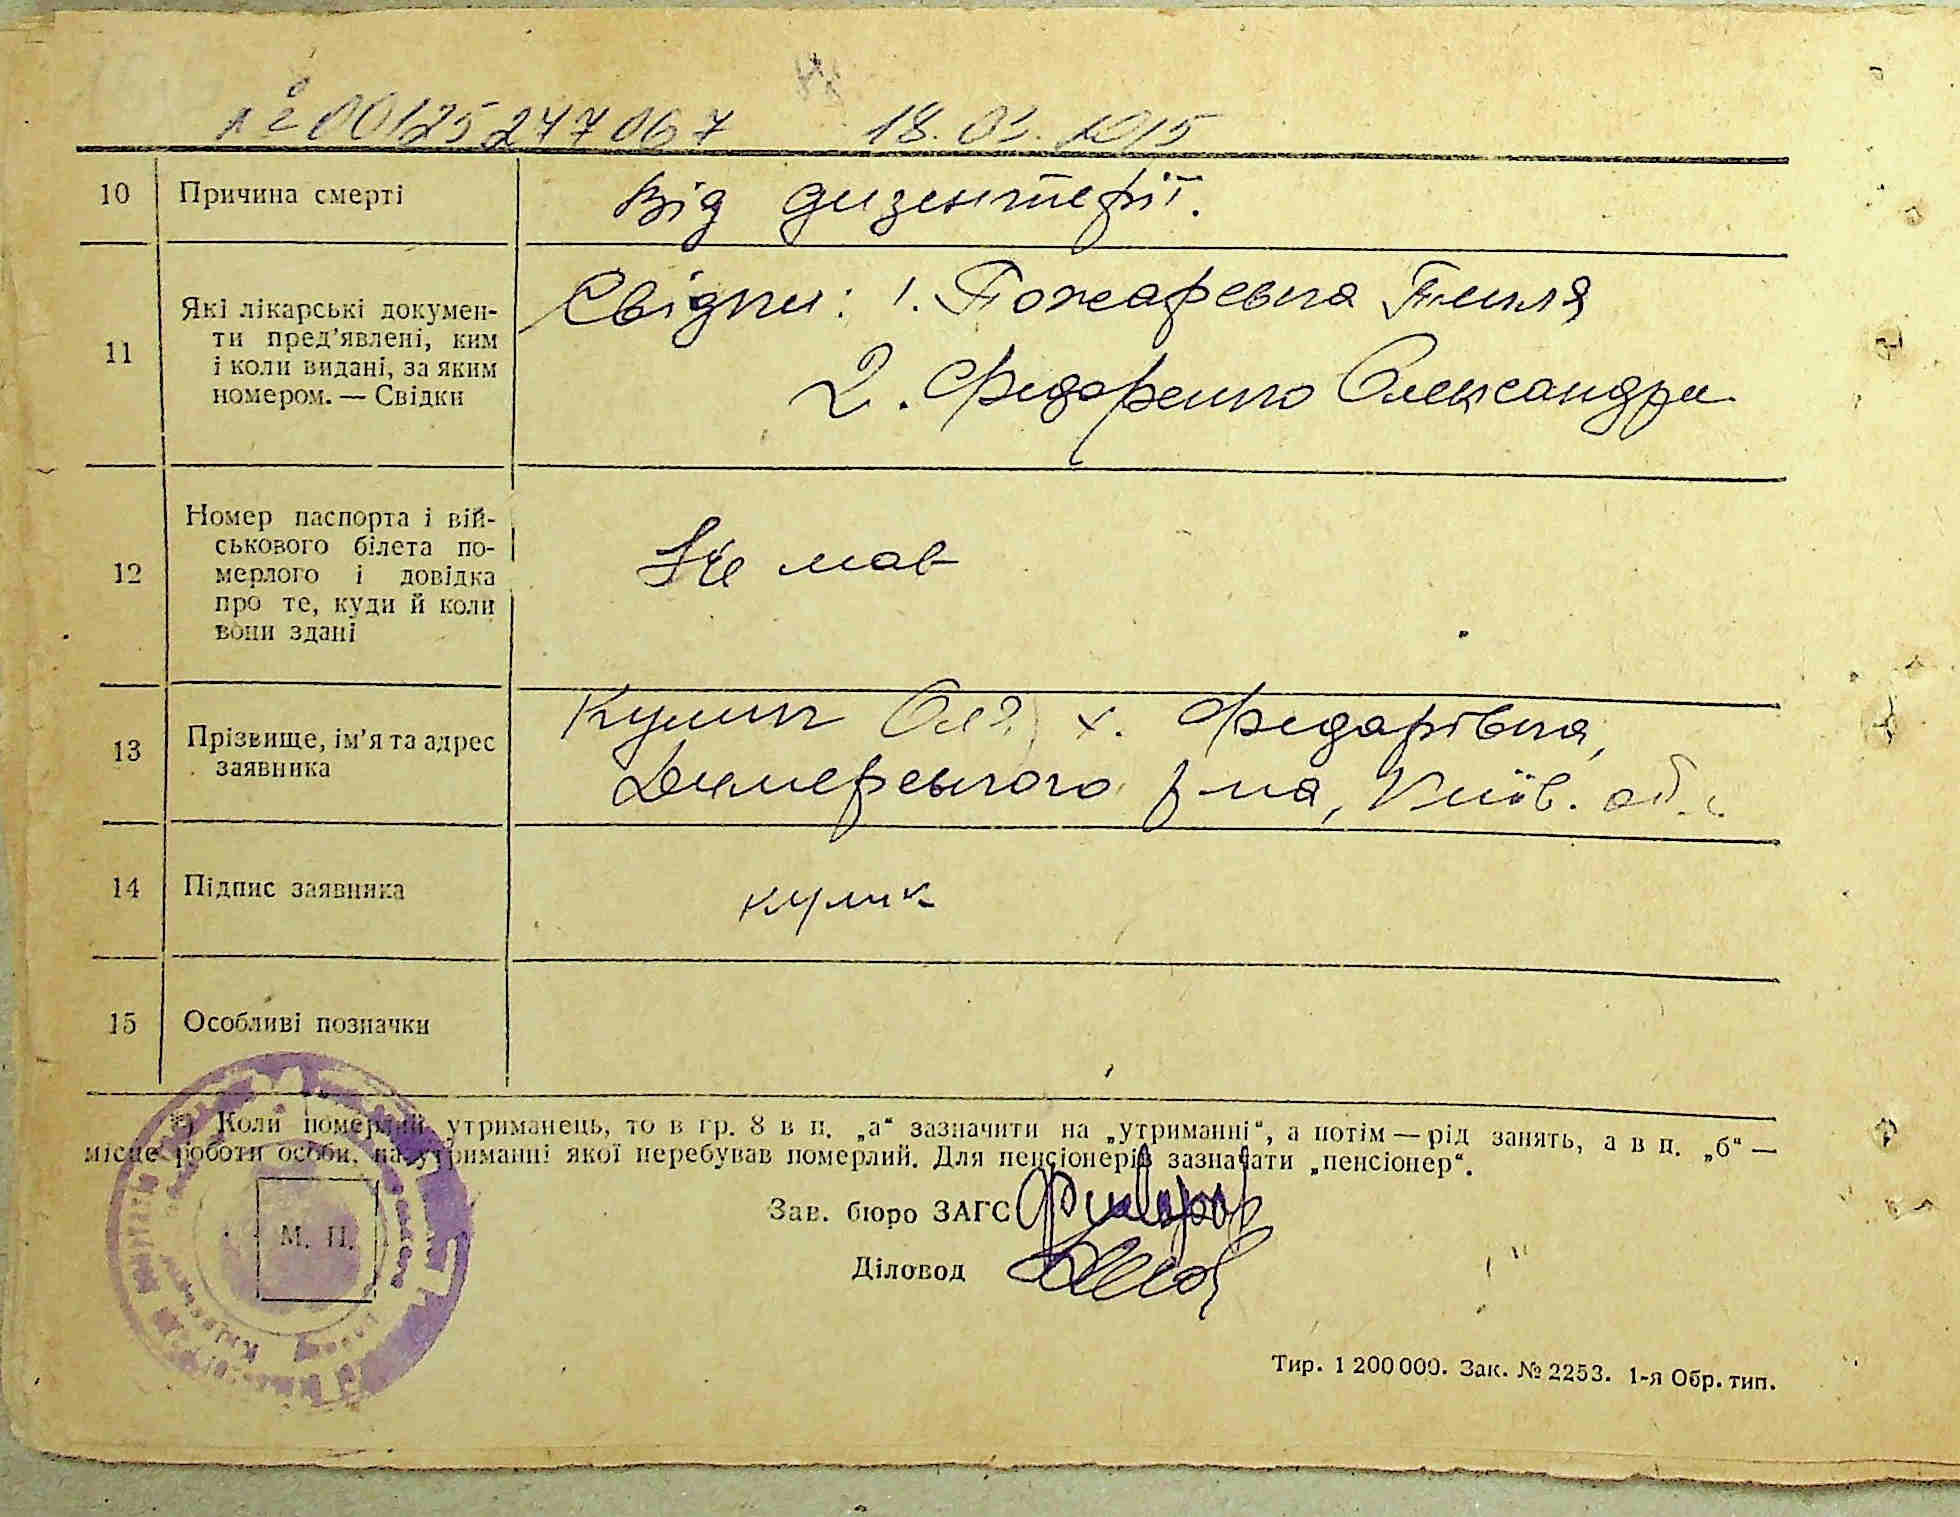 № 00125247067 18.02.2015
10 Причина смерті Від дизентерії.
11 Які лікарські докумен-
ти пред'явлені, ким
і коли видані, за яким
номером. — Свідки
Свідки: 1. Пожаревка
2. Федоренко Олександра
12 Номер паспорта і вій-
ськового білета по-
мерлого і довідка
про те, куди й коли
вони здані
Не мав
13 Прізвище, ім'я та адрес
заявника
Кулик Оля, х. Федарівка,
Димерського р-на, Київ. обл.
14 Підпис заявника кулик
15 Особливі позначки
*) Коли померлий утриманець, то в гр. 8 в п. „а“ зазначити на „утриманні“, а потім — рід занять, а в п. „б“ —
місце роботи особи, на утриманні якої перебував померлий. Для пенсіонерів зазначати „пенсіонер“.
Зав. бюро ЗАГС
М. П.
Діловод
Тир. 1 200 000. Зак. № 2253. 1-я Обр. тип.